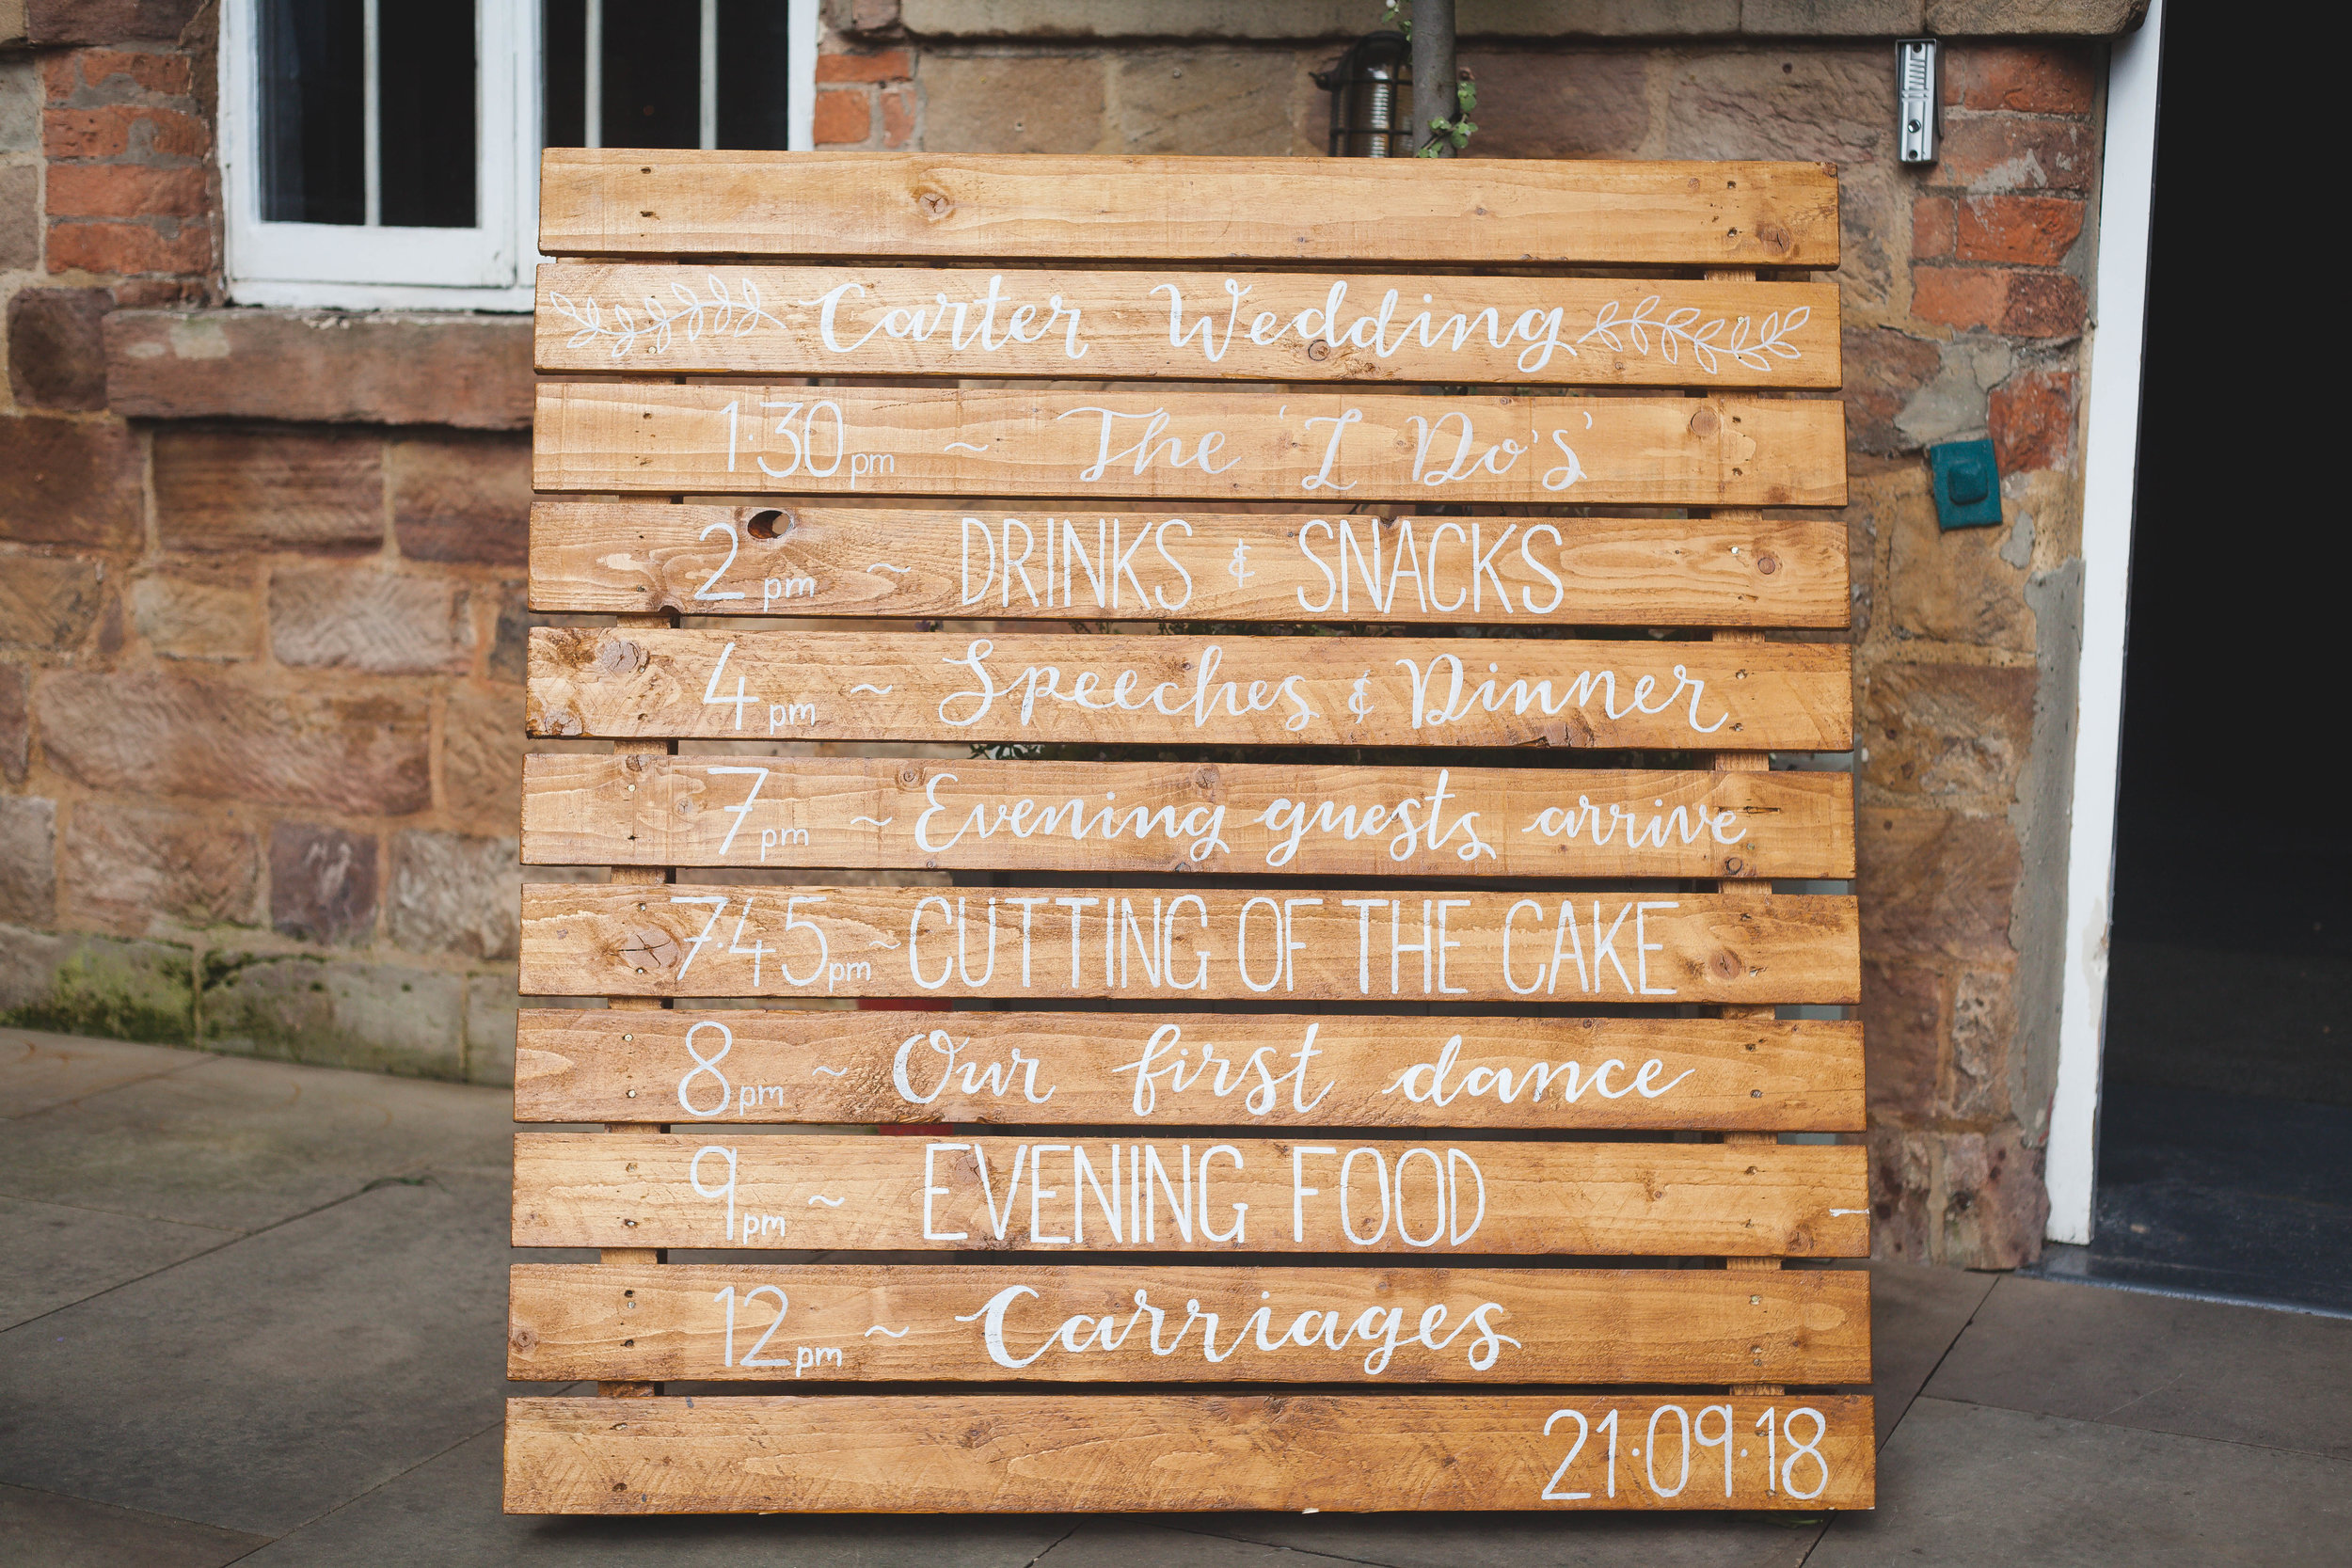 Carter Wedding
1·30pm ~ The 'I Do's'
2pm ~ DRINKS & SNACKS
4pm ~ Speeches & Dinner
7pm ~ Evening guests arrive
7·45pm ~ CUTTING OF THE CAKE
8pm ~ Our first dance
9pm ~ EVENING FOOD
12pm ~ Carriages
21·09·18